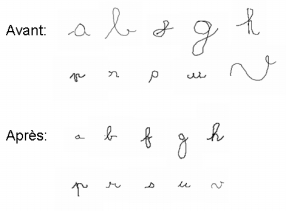 Avant: a b g h
p u v
Après: a b f g h
p r s u v